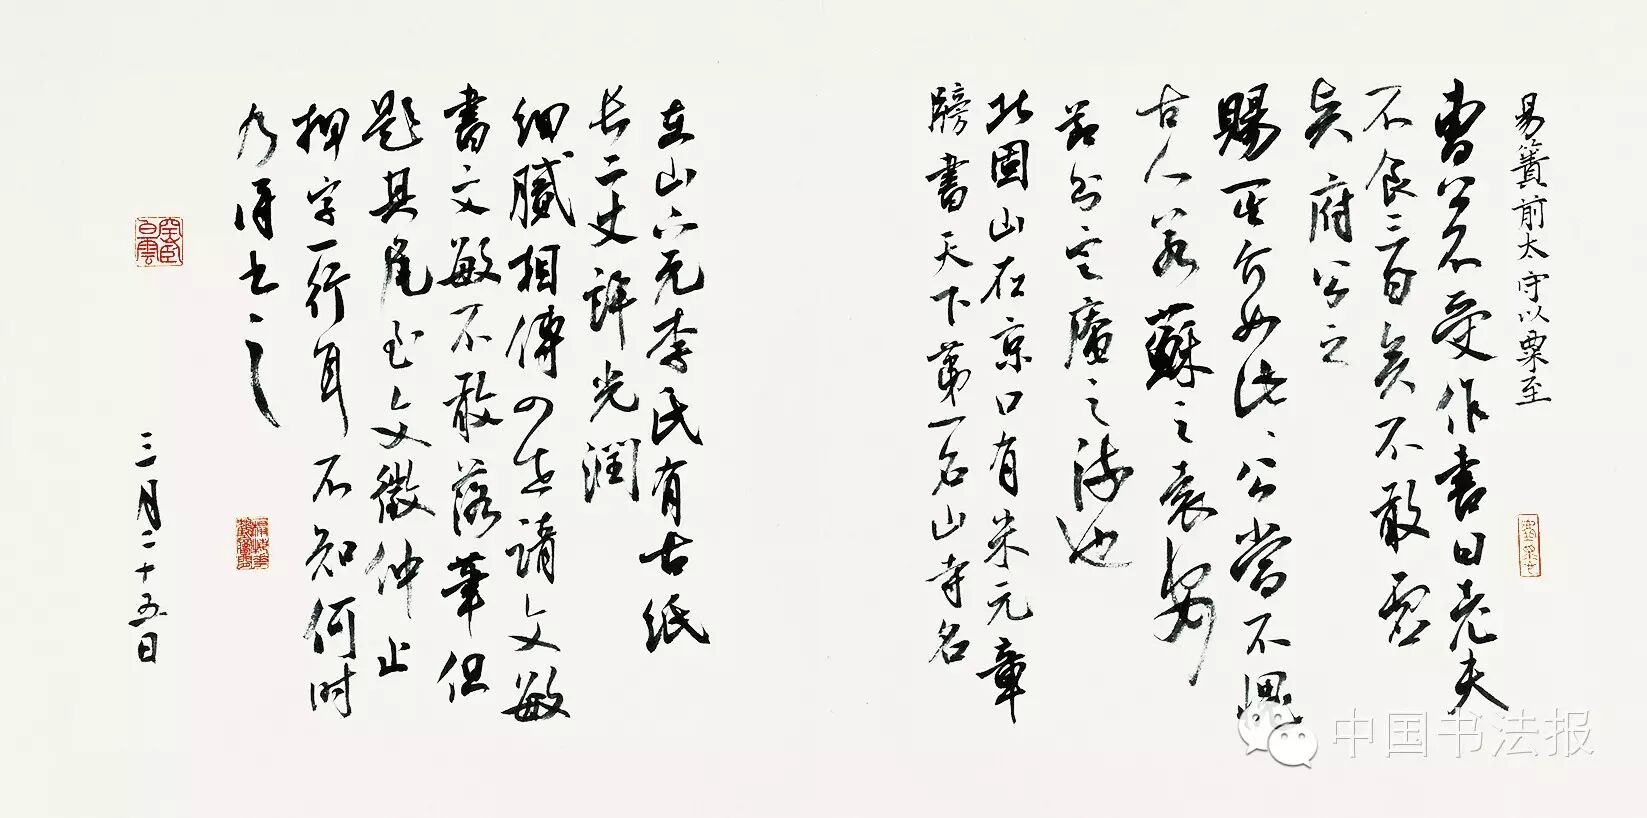 易簀前太守以粟至
曹公不受作書曰老夫
不食三百矣不敢虛
府公之
賜所介如此公當不愧
古人
之
北固山在京口有米元章
牓書天下第一名山寺名
立山公克李氏有古紙
長二丈許光潤
細膩相傳四世請文敏
書文敏不敢落筆但
題其尾至文徵仲止
押字一行耳不知何時
乃得書之
三月二十五日
中国书法报